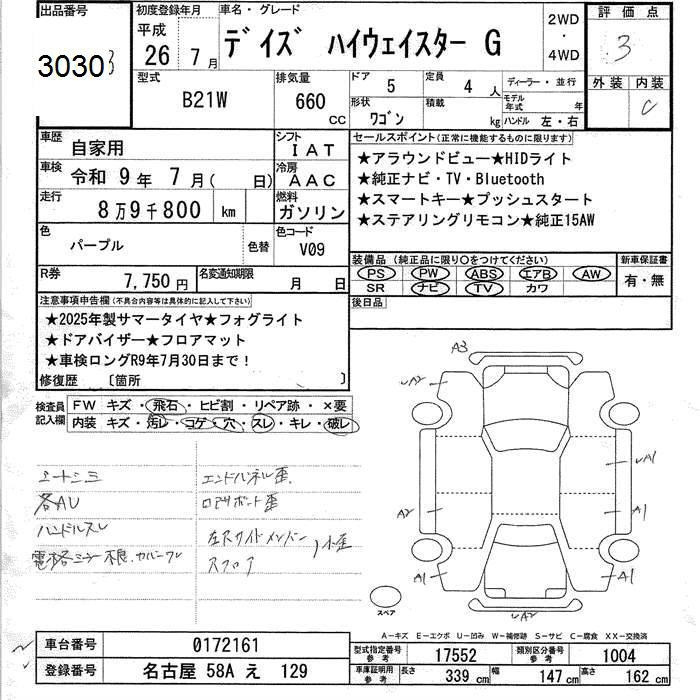 出品番号 初度登録年月 車名・グレード 2WD・4WD 評価点
30303 平成 26年 7月 デイズ ハイウェイスター G 3
型式 排気量 ドア 5 定員 4人 ディーラー・並行 外装 内装
B21W 660cc 形状 ワゴン 積載 kg モデル年式 年 ハンドル 左・右 C
車歴 自家用 シフト IAT セールスポイント(正常に機能するものに限ります)
車検 令和 9年 7月( 日) 冷房 AAC ★アラウンドビュー★HIDライト
★純正ナビ・TV・Bluetooth
走行 8万9千800 km 燃料 ガソリン ★スマートキー★プッシュスタート
★ステアリングリモコン★純正15AW
色 パープル 色替 色コード V09
装備品(純正品に限り○をつけてください) 新車保証書
PS PW ABS エアB AW 有・無
SR ナビ TV カワ
R券 7,750円 名変通知期限 月 日
後日品
注意事項申告欄(不具合内容等は具体的に記入して下さい)
★2025年製サマータイヤ★フォグライト
★ドアバイザー★フロアマット
★車検ロングR9年7月30日まで!
修復歴 〔箇所 〕
検査員記入欄 FW キズ・飛石・ヒビ割・リペア跡・×要
内装 キズ・汚レ・コゲ・穴・スレ・キレ・破レ
シートシミ エンドパネル歪
各AU ロアサポート歪
ハンドルスレ 左Rサイドメンバー
スフロア
小歪
A3
A2
A1
A2
A1
A1
A1
A2
スペア
A-キズ E-エクボ U-凹み W-補修跡 S-サビ C-腐食 XX-交換済
車台番号 0172161 型式指定番号 参考 17552 類別区分番号 参考 1004
登録番号 名古屋 58A え 129 車庫証明用 参考 長さ 339 cm 幅 147 cm 高さ 162 cm